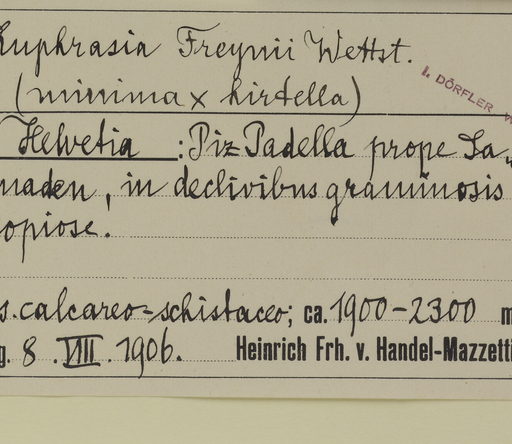 Euphrasia Freynii Wettst.
(minima x hirtella)
I. DÖRFLER W
Helvetia : Piz Padella prope Sa„
maden, in declivibus graminosis
opiose.
s. calcareo-schistaceo; ca. 1900-2300 m
g. 8. VIII. 1906. Heinrich Frh. v. Handel-Mazzetti